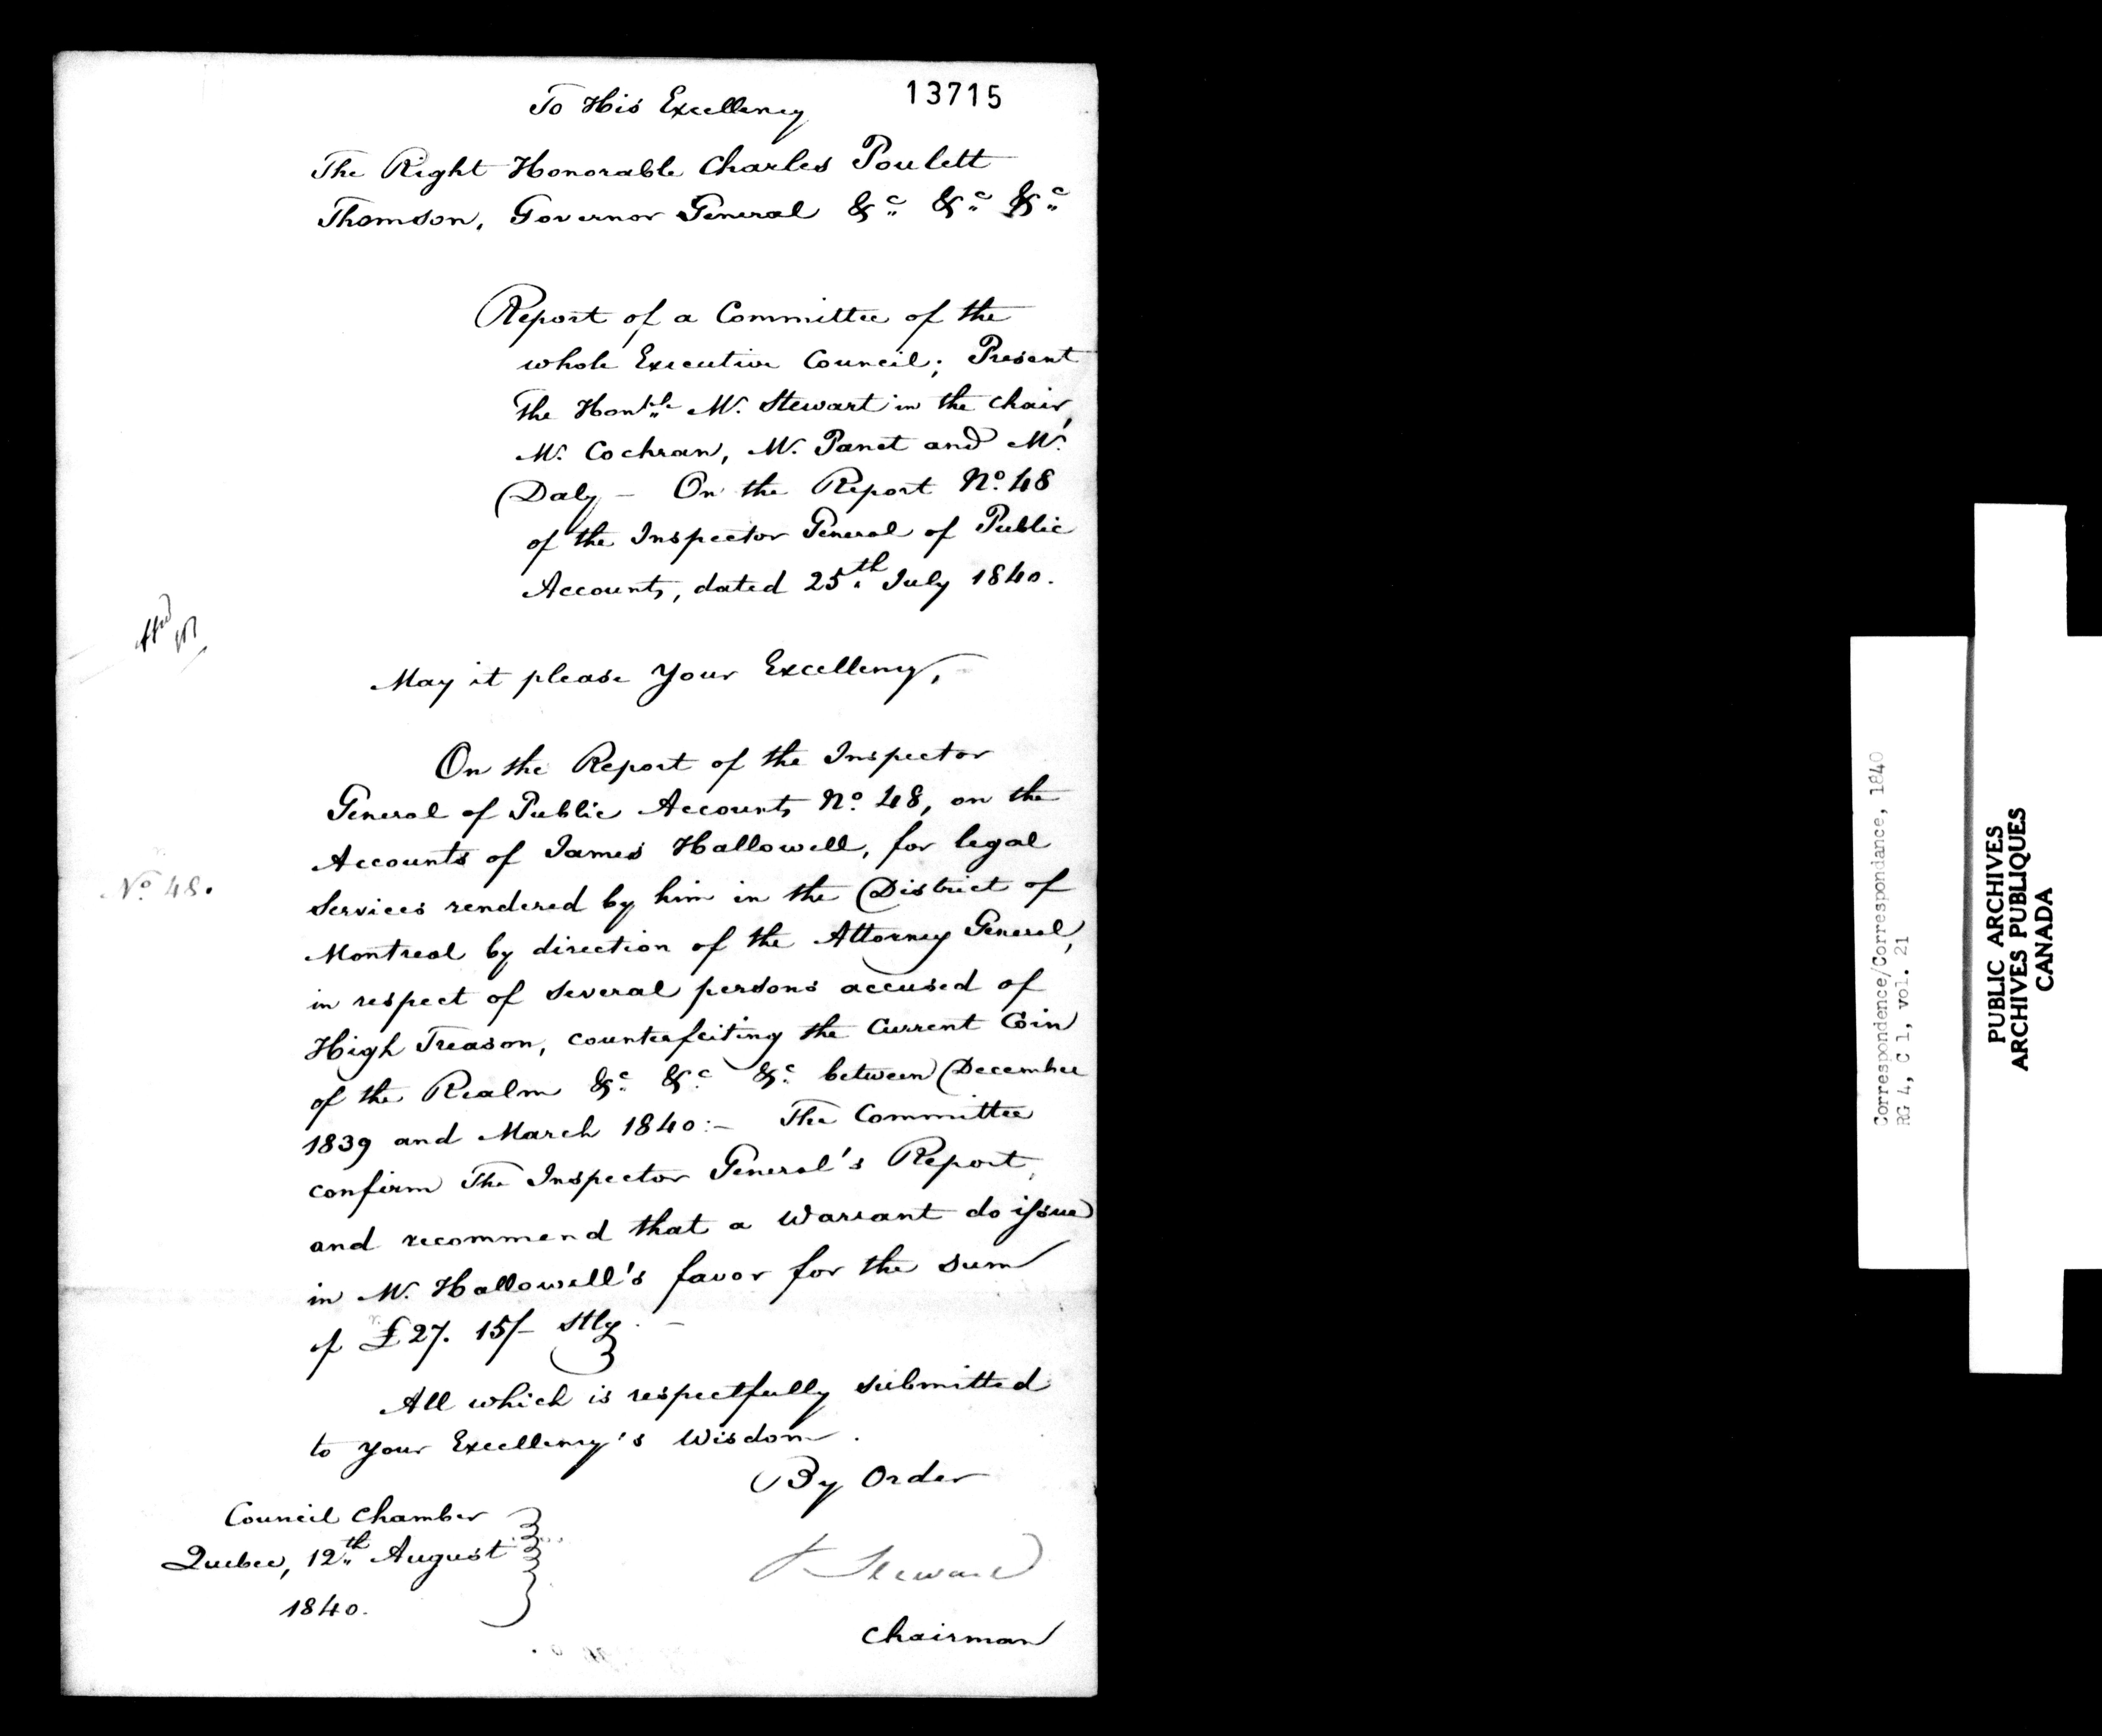 13715
To His Excellency
The Right Honorable Charles Poulett
Thomson, Governor General &c. &c. &c.
Report of a Committee of the
whole Executive Council; Present
The Honble Mr. Stewart in the Chair,
Mr. Cochran, Mr. Panet and Mr.
Daly — On the Report No. 48
of the Inspector General of Public
Accounts, dated 25th July 1840.
May it please Your Excellency,
On the Report of the Inspector
General of Public Accounts No. 48, on the
Accounts of James Hallowell, for legal
No. 48.
Services rendered by him in the District of
Montreal by direction of the Attorney General,
in respect of several persons accused of
High Treason, counterfeiting the Current Coin
of the Realm &c. &c. &c. between December
1839 and March 1840:— The Committee
confirm The Inspector General's Report,
and recommend that a Warrant do issue
in Mr. Hallowell's favor for the sum
of £27. 15/- Stlg. —
All which is respectfully submitted
to Your Excellency's Wisdom.
By Order
Council Chamber
Quebec, 12th August
1840.
Stewart
Chairman
Correspondence/Correspondance, 1840
RG 4, C 1, vol. 21
PUBLIC ARCHIVES
ARCHIVES PUBLIQUES
CANADA